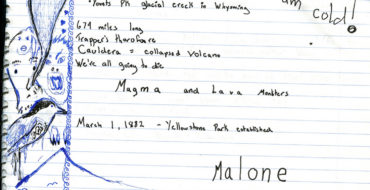 PK glacial creek in Wyoming
am
cold!
679 miles long
Trapper's
Cauldera = collapsed volcano
We're all going to die
Magma and Lava Monsters
March 1, 1882 - Yellowstone Park established
Malone